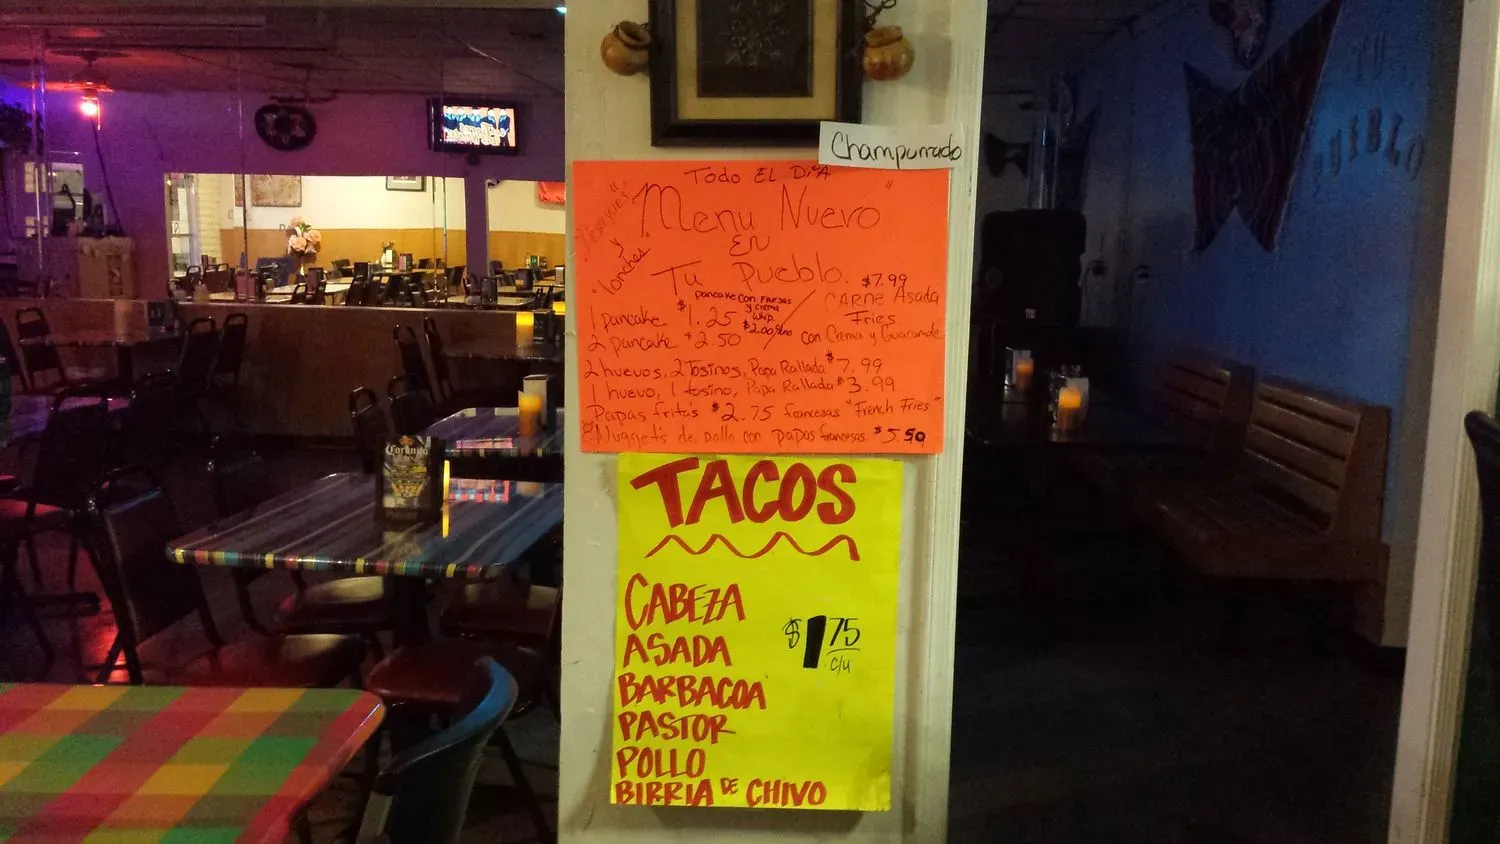 Champurrado
Todo EL DiA
"Desayunos"
y
"lonches"
"Menu Nuevo"
EN
Tu Pueblo.
1 pancake $1.25
2 pancake $2.50
pancake con Fresas
y crema
Whip.
$2.00
$7.99
CARNE Asada
Fries
con Crema y Guacamole
2 huevos, 2 Tosinos, Papa Rallada $7.99
1 huevo, 1 tosino, Papa Rallada $3.99
Papas fritas $2.75 francesas "French Fries"
Nuggets de pollo con papas francesas $5.50
TACOS
CABEZA
ASADA
BARBACOA
PASTOR
POLLO
BIRRIA DE CHIVO
$1.75
c/u
TU
PUEBLO
Corona